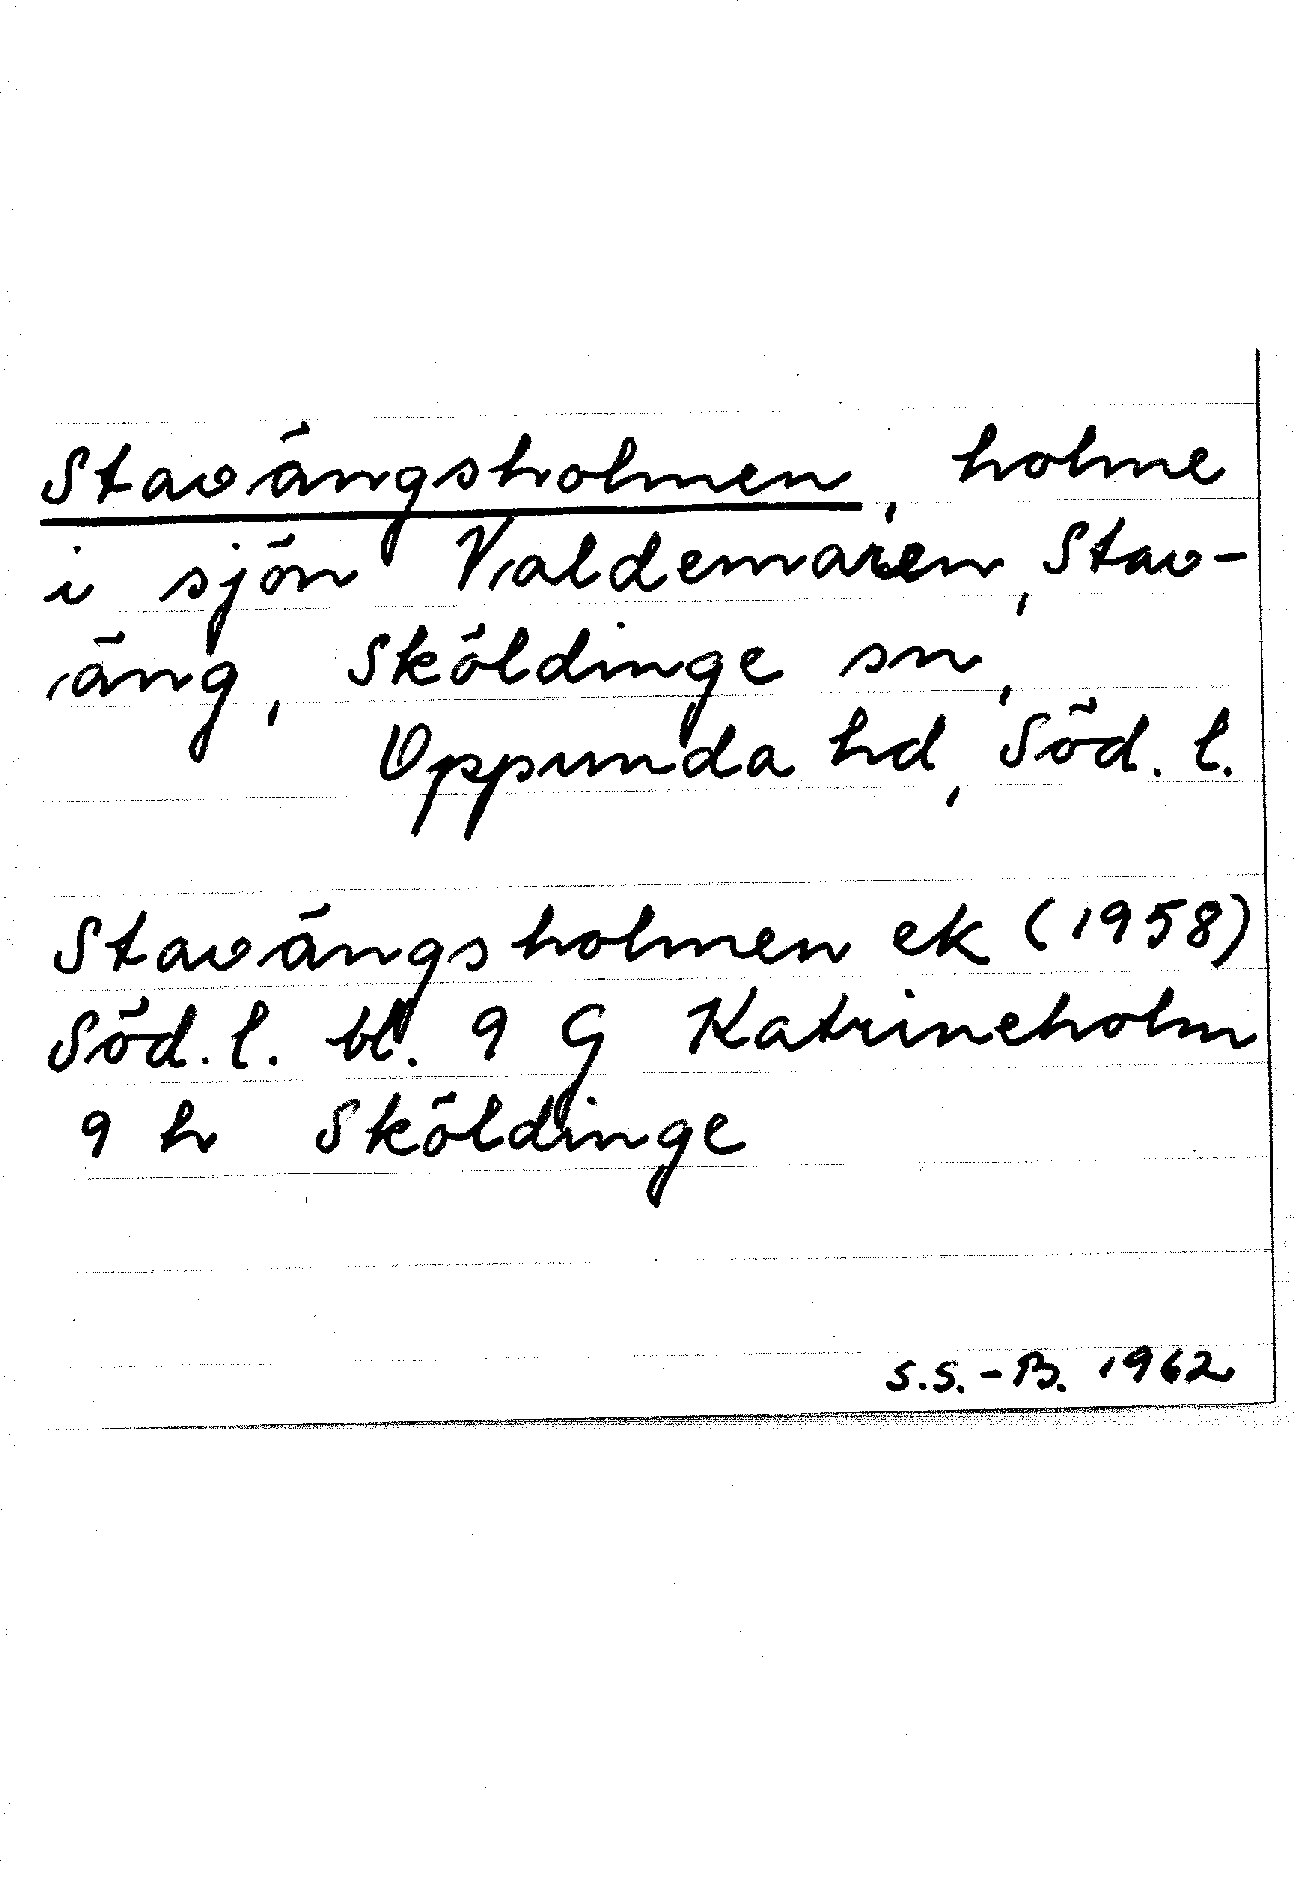 Stavängsholmen, holme
i sjön Valdemaren, Stav-
äng, Sköldinge sn,
Oppunda hd, Söd. l.
Stavängsholmen ek (1958)
Söd. l. bl. 9 G Katrineholm
9 h Sköldinge
S.S.-B. 1962